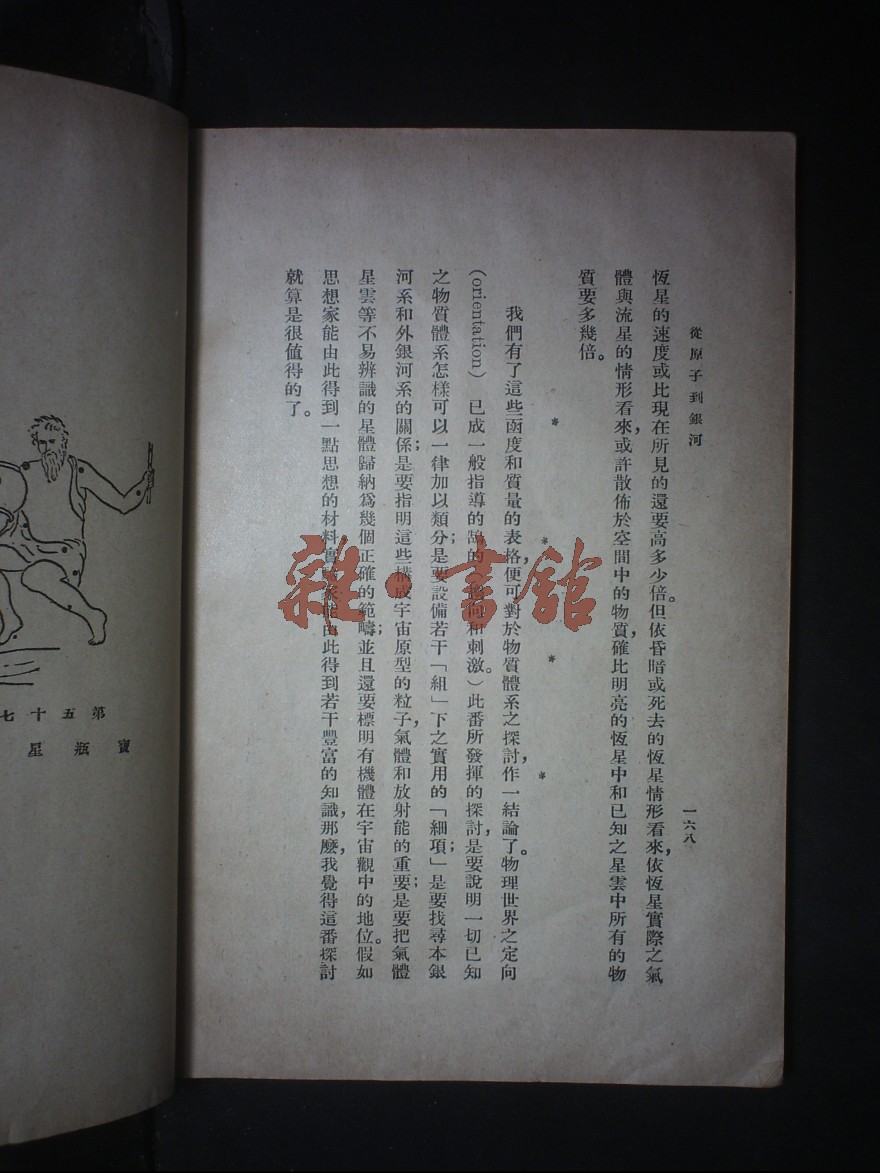 從原子到銀河
一六八
恆星的速度或比現在所見的還要高多少倍。但依昏暗或死去的恆星情形看來，依恆星實際之氣
體與流星的情形看來，或許散佈於空間中的物質，確比明亮的恆星中和已知之星雲中所有的物
質要多幾倍。
* * * *
我們有了這些函度和質量的表格，便可對於物質體系之探討，作一結論了。物理世界之定向
(orientation)已成一般指導的鵠的 和刺激。)此番所發揮的探討，是要說明一切已知
之物質體系怎樣可以一律加以類分；是要設備若干「組」下之實用的「細項」；是要找尋本銀
河系和外銀河系的關係；是要指明這些構成宇宙原型的粒子，氣體和放射能的重要；是要把氣體
星雲等不易辨識的星體歸納爲幾個正確的範疇；並且還要標明有機體在宇宙觀中的地位。假如
思想家能由此得到一點思想的材料，實 家能由此得到若干豐富的知識，那麼，我覺得這番探討
就算是很值得的了。
雜·書館
第五十七
寶瓶星